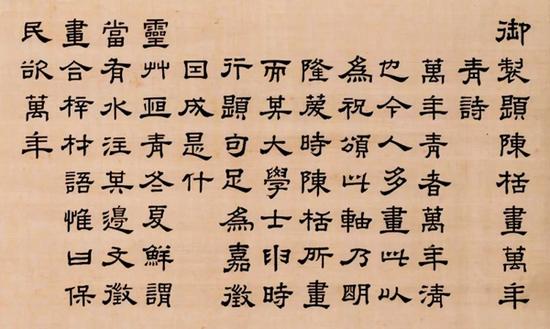 御製題陳栝畫萬年
青詩
萬年青者萬年清
也今人多畫此以
為祝頌此軸乃明
隆慶時陳栝所畫
而其大學士申時
行題句足為嘉徵
囙成是什
靈艸恒青冬夏鮮謂
當有水注其邊文徵
畫合梓材語惟曰保
民欲萬年